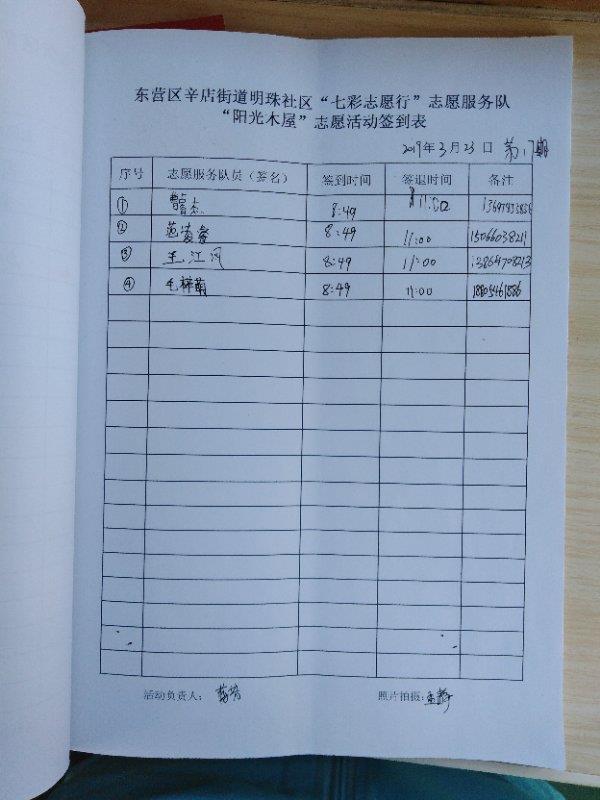 东营区辛店街道明珠社区“七彩志愿行”志愿服务队
“阳光木屋”志愿活动签到表
2019年3月23日 第17期
序号 志愿服务队员（签名） 签到时间 签退时间 备注
① 8:49 11:02
② 8:49 11:00 15066038211
③ 王江河 8:49 11:00 13864708213
④ 毛梓萌 8:49 11:00 18805461886
活动负责人： 照片拍摄：